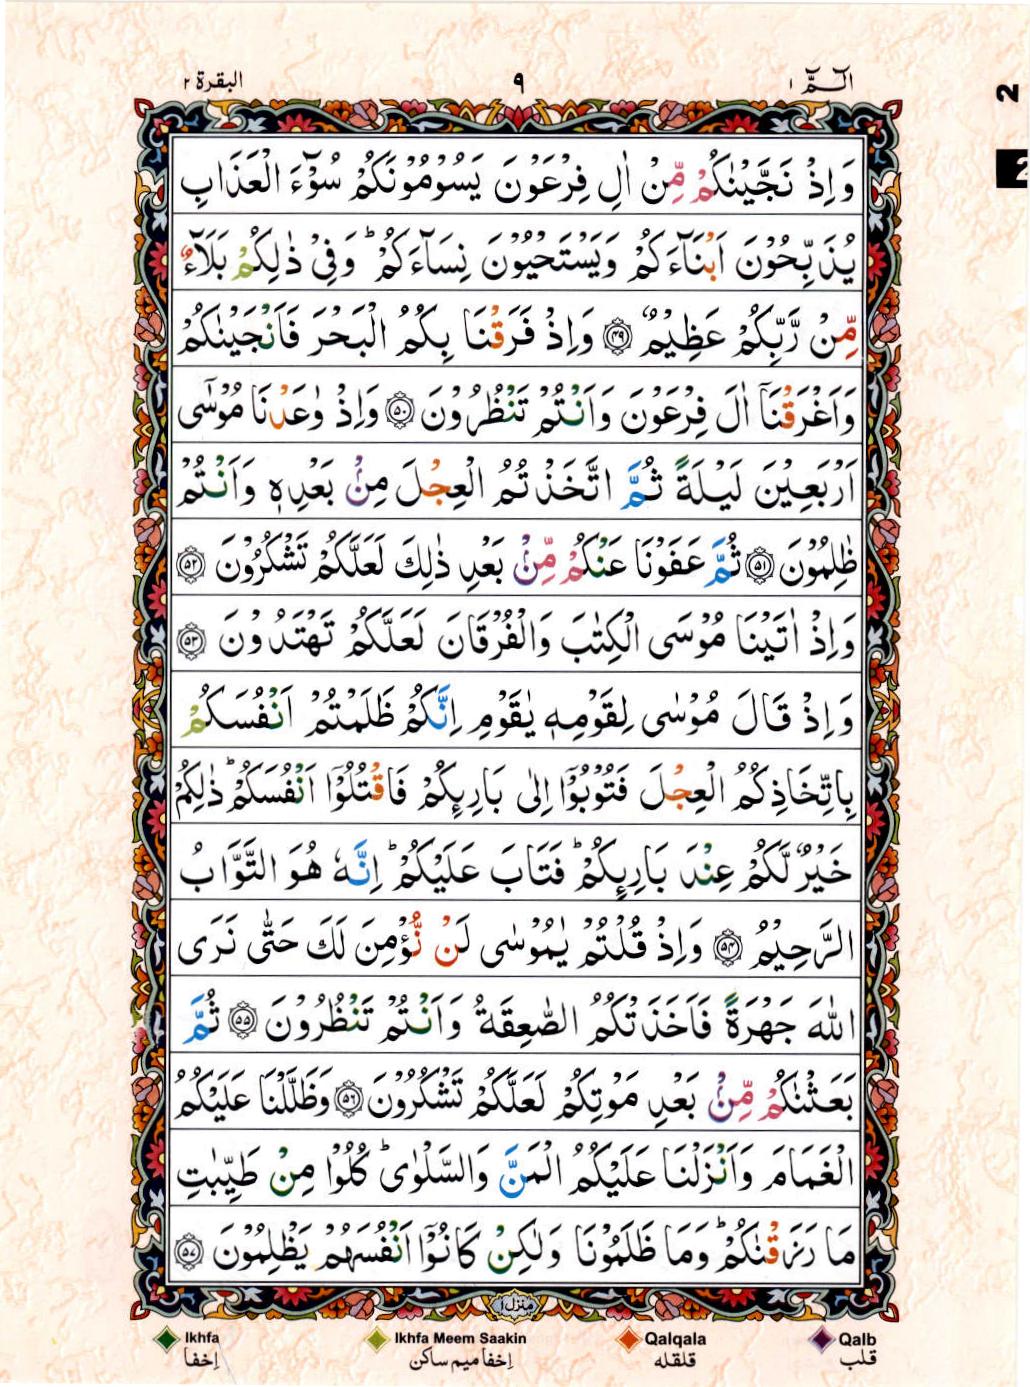 الٓـمّٓ ۱ ۹ البقرة ۲
2
2
وَاِذْ نَجَّيْنٰكُمْ مِّنْ اٰلِ فِرْعَوْنَ يَسُوْمُوْنَكُمْ سُوْٓءَ الْعَذَابِ
يُذَبِّحُوْنَ اَبْنَآءَكُمْ وَيَسْتَحْيُوْنَ نِسَآءَكُمْ ؕ وَفِيْ ذٰلِكُمْ بَلَآءٌ
مِّنْ رَّبِّكُمْ عَظِيْمٌ ﴿۴۹﴾ وَاِذْ فَرَقْنَا بِكُمُ الْبَحْرَ فَاَنْجَيْنٰكُمْ
وَاَغْرَقْنَآ اٰلَ فِرْعَوْنَ وَاَنْتُمْ تَنْظُرُوْنَ ﴿۵۰﴾ وَاِذْ وٰعَدْنَا مُوْسٰٓى
اَرْبَعِيْنَ لَيْلَةً ثُمَّ اتَّخَذْتُمُ الْعِجْلَ مِنْۢ بَعْدِهٖ وَاَنْتُمْ
ظٰلِمُوْنَ ﴿۵۱﴾ ثُمَّ عَفَوْنَا عَنْكُمْ مِّنْۢ بَعْدِ ذٰلِكَ لَعَلَّكُمْ تَشْكُرُوْنَ ﴿۵۲﴾
وَاِذْ اٰتَيْنَا مُوْسَى الْكِتٰبَ وَالْفُرْقَانَ لَعَلَّكُمْ تَهْتَدُوْنَ ﴿۵۳﴾
وَاِذْ قَالَ مُوْسٰى لِقَوْمِهٖ يٰقَوْمِ اِنَّكُمْ ظَلَمْتُمْ اَنْفُسَكُمْ
بِاتِّخَاذِكُمُ الْعِجْلَ فَتُوْبُوْٓا اِلٰى بَارِئِكُمْ فَاقْتُلُوْٓا اَنْفُسَكُمْ ؕ ذٰلِكُمْ
خَيْرٌ لَّكُمْ عِنْدَ بَارِئِكُمْ ؕ فَتَابَ عَلَيْكُمْ ؕ اِنَّهٗ هُوَ التَّوَّابُ
الرَّحِيْمُ ﴿۵۴﴾ وَاِذْ قُلْتُمْ يٰمُوْسٰى لَنْ نُّؤْمِنَ لَكَ حَتّٰى نَرَى
اللّٰهَ جَهْرَةً فَاَخَذَتْكُمُ الصّٰعِقَةُ وَاَنْتُمْ تَنْظُرُوْنَ ﴿۵۵﴾ ثُمَّ
بَعَثْنٰكُمْ مِّنْۢ بَعْدِ مَوْتِكُمْ لَعَلَّكُمْ تَشْكُرُوْنَ ﴿۵۶﴾ وَظَلَّلْنَا عَلَيْكُمُ
الْغَمَامَ وَاَنْزَلْنَا عَلَيْكُمُ الْمَنَّ وَالسَّلْوٰى ؕ كُلُوْا مِنْ طَيِّبٰتِ
مَا رَزَقْنٰكُمْ ؕ وَمَا ظَلَمُوْنَا وَلٰكِنْ كَانُوْٓا اَنْفُسَهُمْ يَظْلِمُوْنَ ﴿۵۷﴾
منزل ۱
Ikhfa Ikhfa Meem Saakin Qalqala Qalb
اِخفا اِخفا میم ساکن قلقله قلب